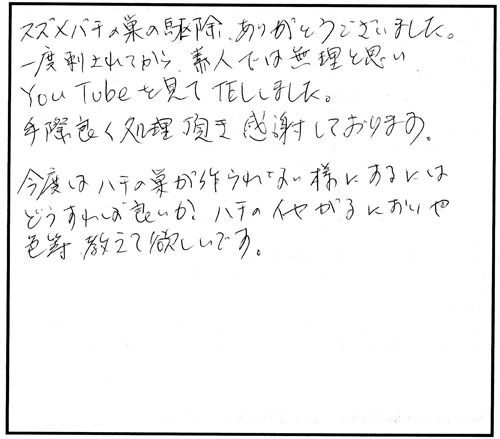 スズメバチの巣の駆除、ありがとうございました。
一度刺されてから、素人では無理と思い
YouTubeを見てTELしました。
手際良く処理頂き感謝しております。
今度はハチの巣が作られない様にするには
どうすれば良いか？ハチのイヤがるにおいや
色等教えて欲しいです。